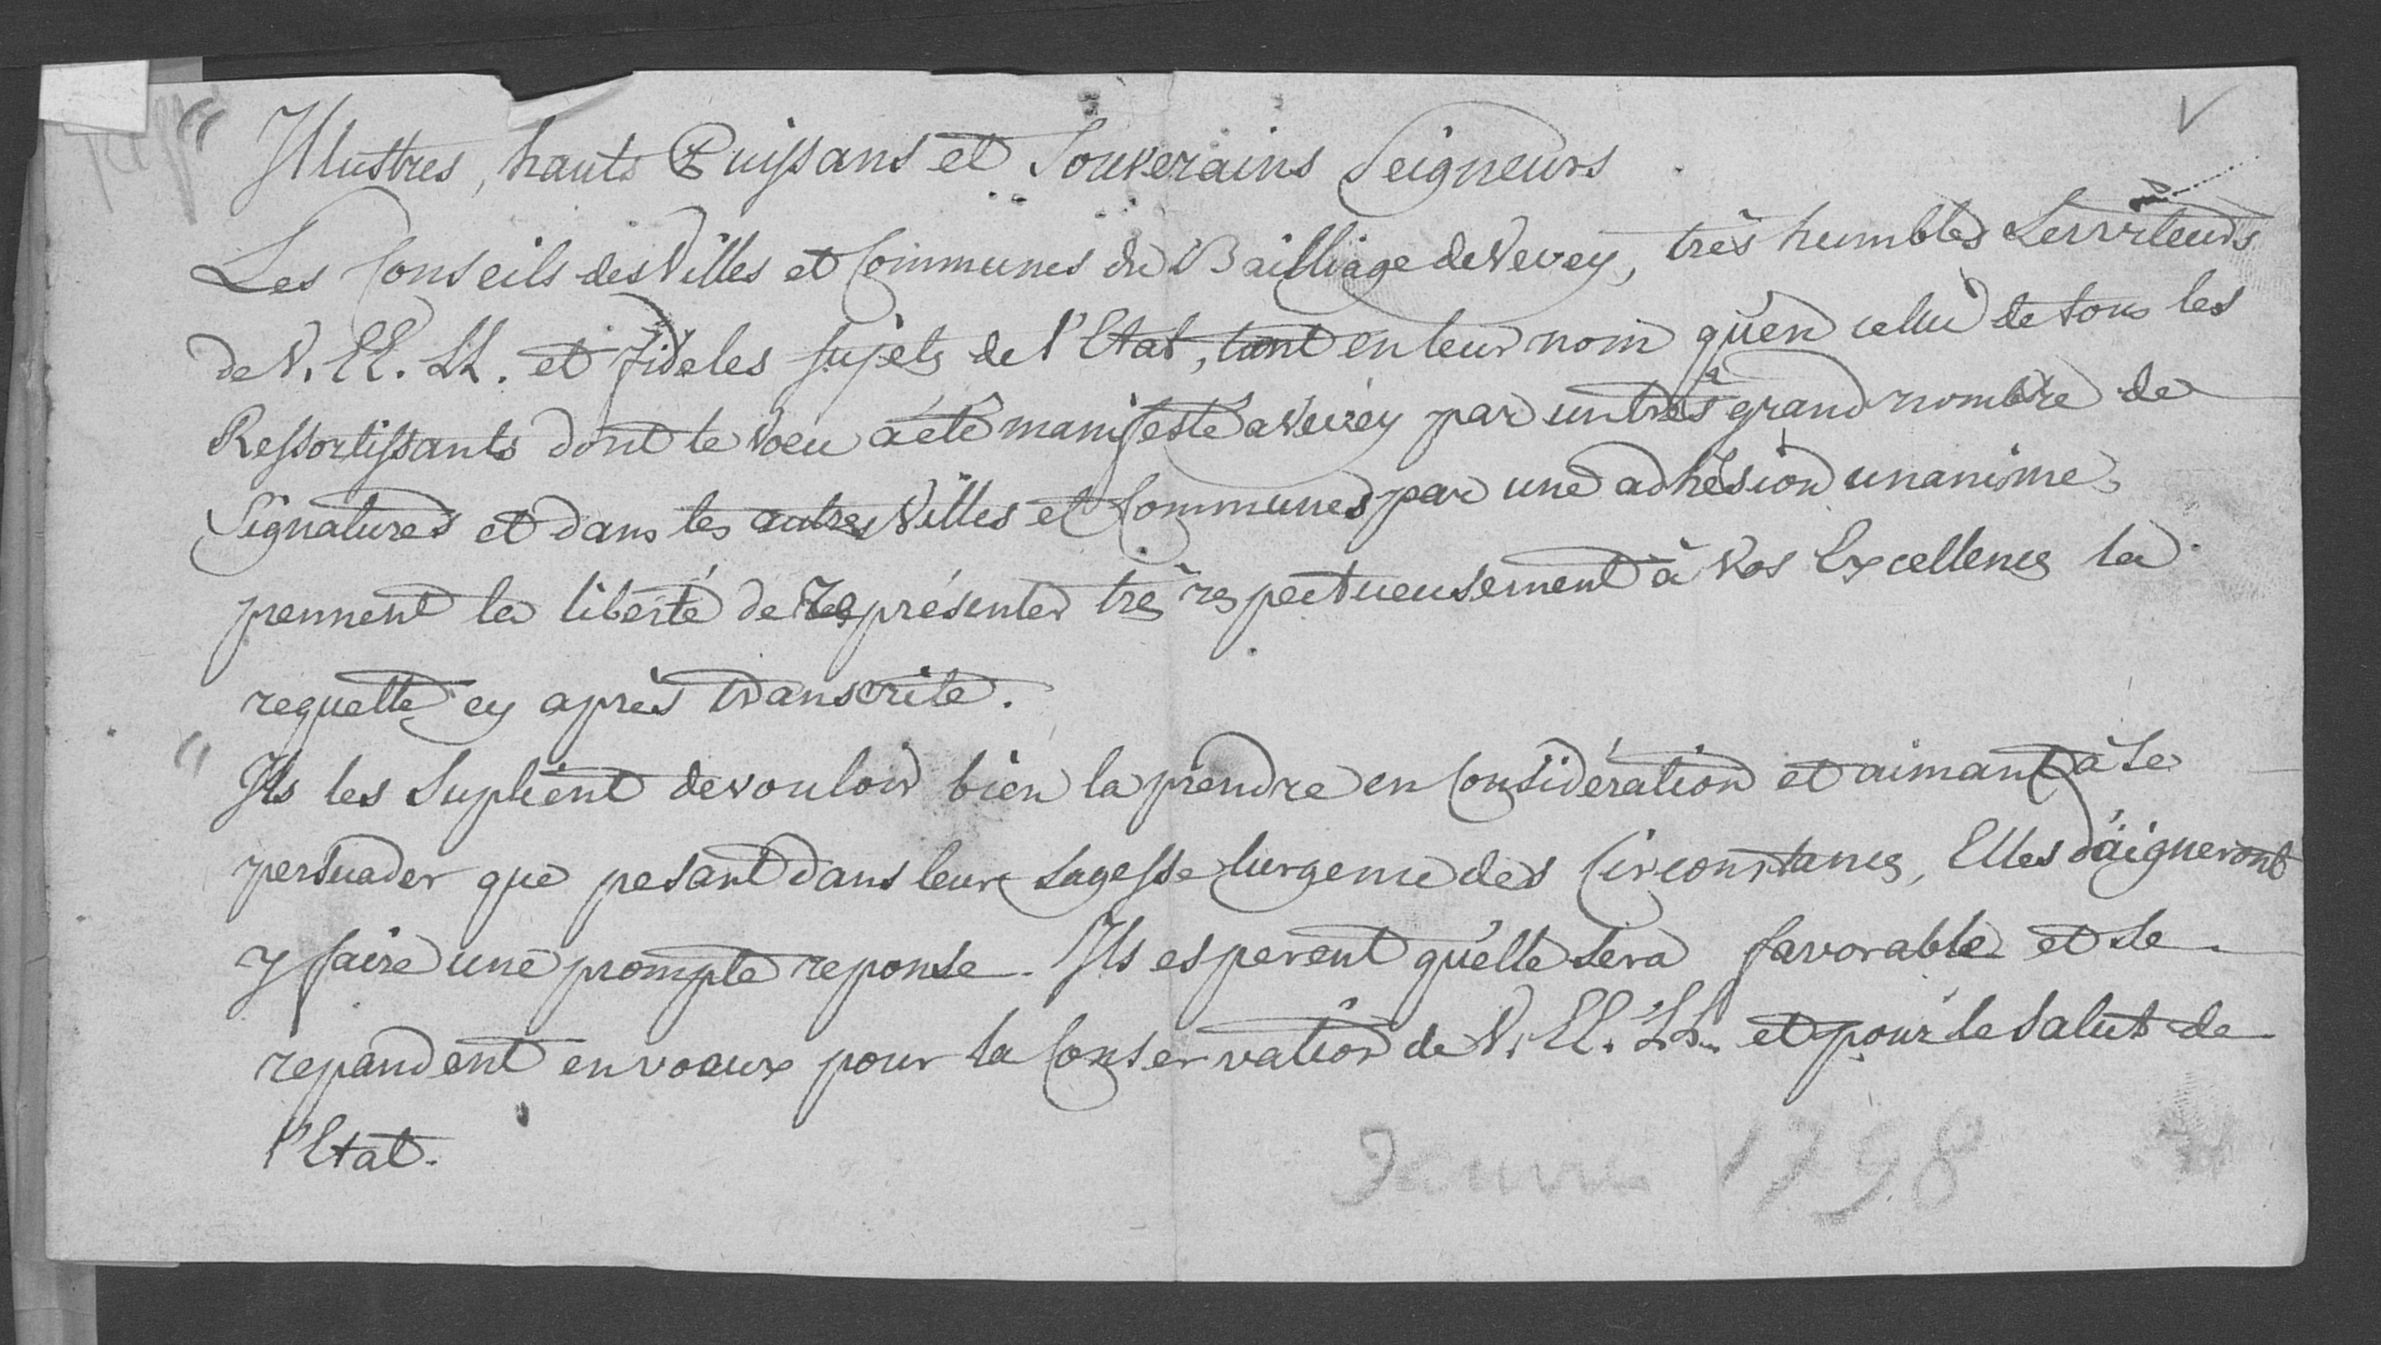 " Illustres, hauts Puissans et Souverains Seigneurs
Les Conseils des Villes et Communes du Bailliage de Vevey, très humbles Serviteurs
de V. EE. LL. et fideles sujets de l'Etat, tant en leur nom qu'en celui de tous les
Ressortissants dont le voeu a été manifesté a Vevey par un très grand nombre de
Signatures et dans les autres Villes et Communes par une adhésion unanime,
prennent la liberté de représenter très respectueusement à Vos Excellences la
requette cy après transcrite.
" Ils les Suplient de vouloir bien la prendre en Considération et aimant à se
persuader que pesant dans leur sagesse l'urgence des Circonstances, Elles daigneront
y faire une prompte reponse. Ils esperent qu'elle sera favorable et se
repandent en voeux pour la Conservation de V. EE. LL. et pour le salut de
l'Etat.
Janvier 1798